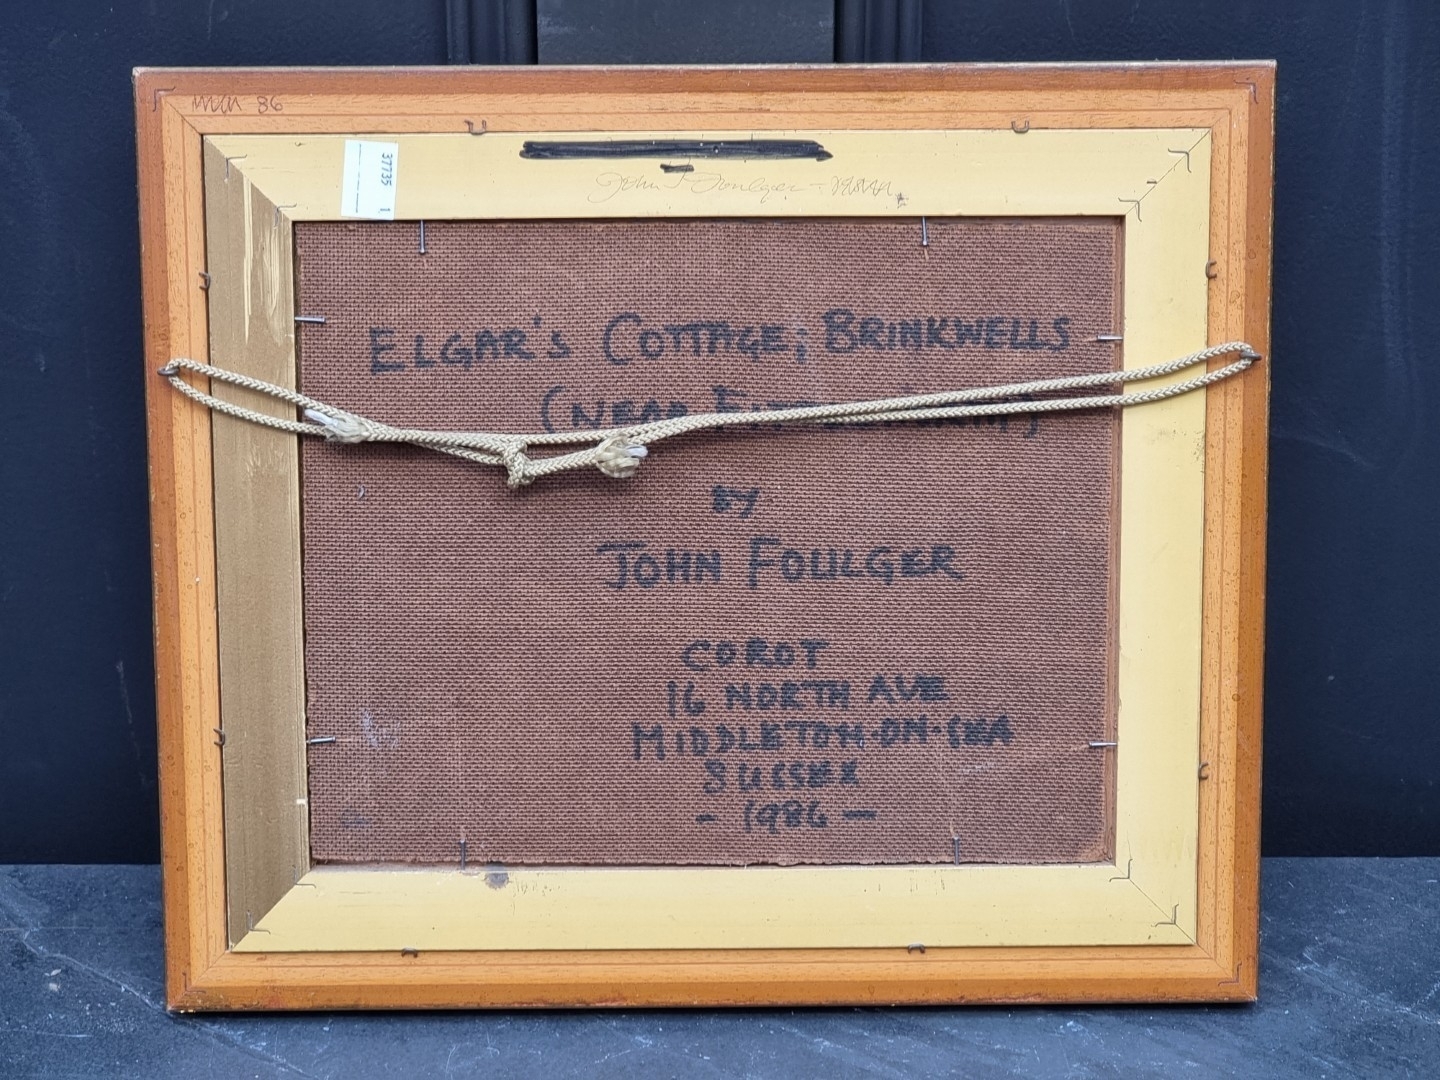 86
37735 1
John Foulger
ELGAR'S COTTAGE, BRINKWELLS
(NEAR
BY
JOHN FOULGER
COROT
16 NORTH AVE
MIDDLETON-ON-SEA
SUSSEX
- 1986 -